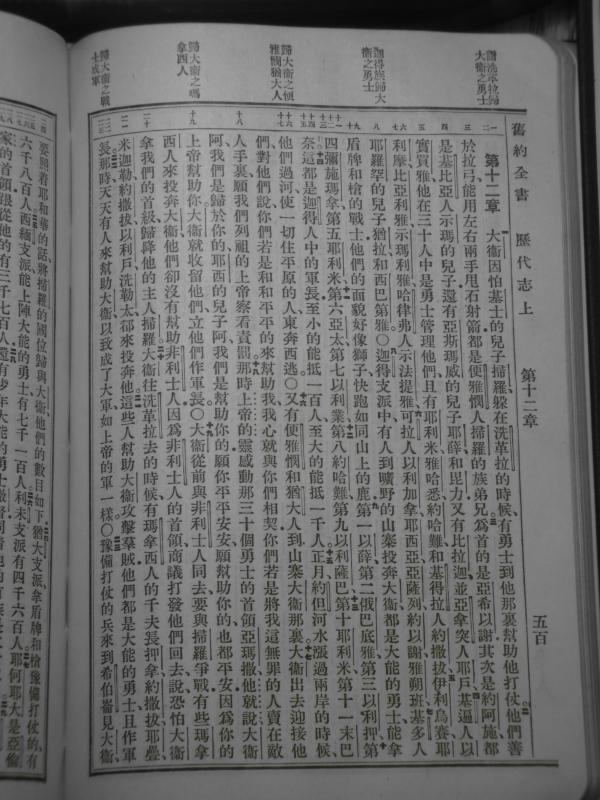 諸洗革拉歸大衛之勇士
迦得族歸大衛之勇士
歸大衛之便雅憫猶大人
歸大衛之瑪拿西人
歸大衛之戰士成軍
舊約全書 歷代志上 第十二章 五百
第十二章 大衛因怕基士的兒子掃羅躲在洗革拉的時候有勇士到他那裏幫助他打仗他們善
於拉弓能用左右兩手甩石射箭都是便雅憫人掃羅的族弟兄為首的是亞希以謝其次是約阿施都
是基比亞人示瑪的兒子還有亞斯瑪威的兒子耶薛和毘力又有比拉迦並亞拿突人耶戶基遍人以
實買雅他在三十人中是勇士管理他們且有耶利米雅哈悉約哈難和基得拉人約撒拔伊利烏賽耶
利摩比亞利雅示瑪利雅哈律弗人示法提雅可拉人以利加拿耶西亞亞薩列約以謝雅朔班基多人
耶羅罕的兒子猶拉和西巴第雅○迦得支派中有人到曠野的山寨投奔大衛都是大能的勇士能拿
盾牌和槍的戰士他們的面貌好像獅子快跑如同山上的鹿第一以薛第二俄巴底雅第三以利押第
四彌施瑪拿第五耶利米第六亞太第七以利業第八約哈難第九以利薩巴第十耶利米第十一末巴
奈這都是迦得人中的軍長至小的能抵一百人至大的能抵一千人正月約但河水漲過兩岸的時候
他們過河使一切住平原的人東奔西逃○又有便雅憫和猶大人到山寨大衛那裏大衛出去迎接他
們對他們說你們若是和和平平的來幫助我我心就與你們相契你們若是將我這無罪的人賣在敵
人手裏願我們列祖的上帝察看責罰那時上帝的靈感動那三十個勇士的首領亞瑪撒他就說大衛
阿我們是歸於你的耶西的兒子阿我們是幫助你的願你平平安安願幫助你的也都平安因為你的
上帝幫助你大衛就收留他們立他們作軍長○大衛從前與非利士人同去要與掃羅爭戰有些瑪拿
西人來投奔大衛他們卻沒有幫助非利士人因為非利士人的首領商議打發他們回去說恐怕大衛
拿我們的首級歸降他的主人掃羅大衛往洗革拉去的時候有瑪拿西人的千夫長押拿約撒拔耶疊
米迦勒約撒拔以利戶洗勒太都來投奔他這些人幫助大衛攻擊羣賊他們都是大能的勇士且作軍
長那時天天有人來幫助大衛以致成了大軍如上帝的軍一樣○豫備打仗的兵來到希伯崙見大衛
要照着耶和華的話將掃羅的國位歸與大衛他們的數目如下猶大支派拿盾牌和槍豫備打仗的有
六千八百人西緬支派能上陣大能的勇士有七千一百人利未支派有四千六百人耶何耶大是亞倫
家的首領跟從他的有三千七百人還有少年大能的勇士